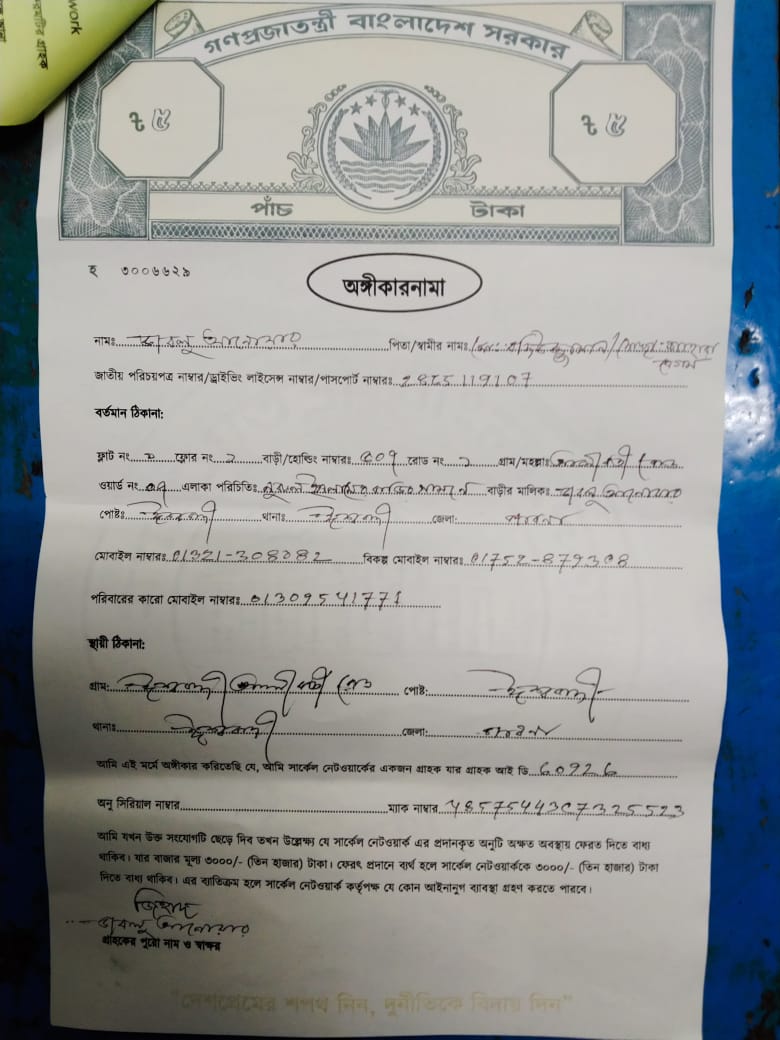 work
গণপ্রজাতন্ত্রী বাংলাদেশ সরকার
৳ ৫ ৳ ৫
পাঁচ টাকা
হ ৩০০৬৬২৯
অঙ্গীকারনামা
নামঃ বাবলু আনোয়ার পিতা/স্বামীর নামঃ
জাতীয় পরিচয়পত্র নাম্বার/ড্রাইভিং লাইসেন্স নাম্বার/পাসপোর্ট নাম্বারঃ
বর্তমান ঠিকানা:
ফ্লাট নং ফ্লোর নং ২ বাড়ী/হোল্ডিং নাম্বারঃ রোড নং গ্রাম/মহল্লাঃ রোড
ওয়ার্ড নং ০৭ এলাকা পরিচিতিঃ নুরুল ইসলামের বাড়ির সামনে বাড়ীর মালিকঃ বাবলু আনোয়ার
পোষ্টঃ ঈশ্বরদী থানাঃ ঈশ্বরদী জেলা: পাবনা
মোবাইল নাম্বারঃ 01321-308082 বিকল্প মোবাইল নাম্বারঃ 01752-879308
পরিবারের কারো মোবাইল নাম্বারঃ 01309541771
স্থায়ী ঠিকানা:
গ্রাম: ঈশ্বরদী রোড পোষ্ট: ঈশ্বরদী
থানাঃ ঈশ্বরদী জেলা: পাবনা
আমি এই মর্মে অঙ্গীকার করিতেছি যে, আমি সার্কেল নেটওয়ার্কের একজন গ্রাহক যার গ্রাহক আই ডি 60926
অনু সিরিয়াল নাম্বার ম্যাক নাম্বার
আমি যখন উক্ত সংযোগটি ছেড়ে দিব তখন উল্লেক্ষ্য যে সার্কেল নেটওয়ার্ক এর প্রদানকৃত অনুটি অক্ষত অবস্থায় ফেরত দিতে বাধ্য
থাকিব। যার বাজার মূল্য ৩০০০/- (তিন হাজার) টাকা। ফেরৎ প্রদানে ব্যর্থ হলে সার্কেল নেটওয়ার্ককে ৩০০০/- (তিন হাজার) টাকা
দিতে বাধ্য থাকিব। এর ব্যতিক্রম হলে সার্কেল নেটওয়ার্ক কর্তৃপক্ষ যে কোন আইনানুগ ব্যাবস্থা গ্রহণ করতে পারবে।
জিহাদ
বাবলু আনোয়ার
গ্রাহকের পুরো নাম ও স্বাক্ষর
"দেশপ্রেমের শপথ নিন, দুর্নীতিকে বিদায় দিন"